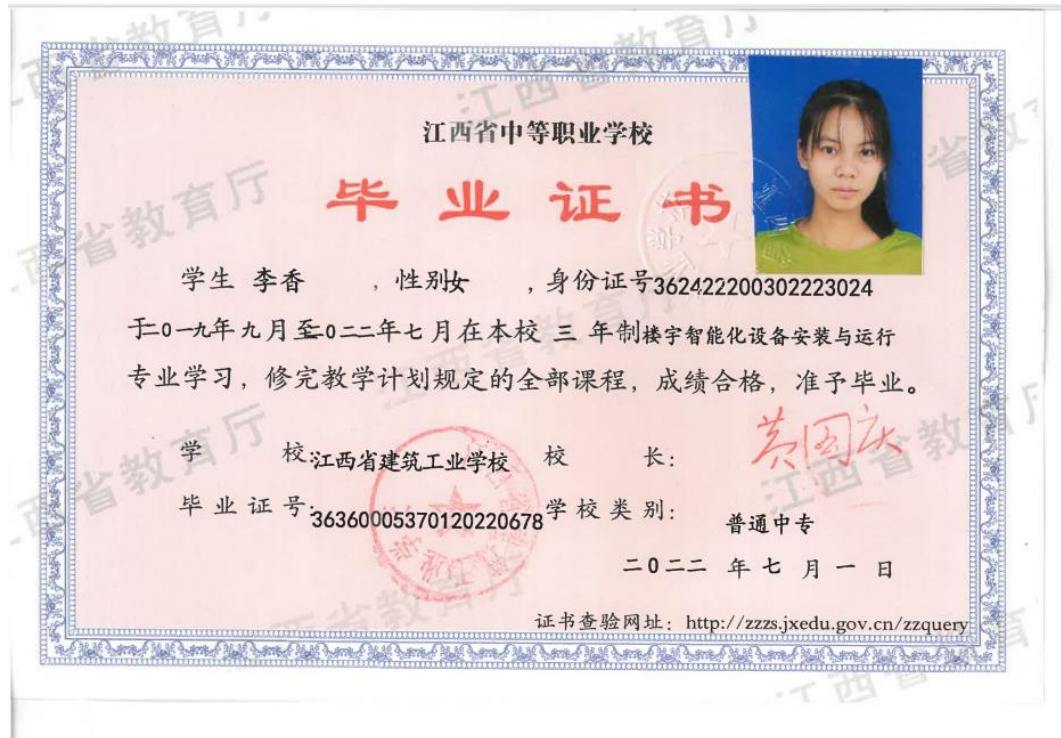 江西省中等职业学校
毕业证书
学生 李香 ，性别女 ，身份证号362422200302223024
于二0一九年九月至二0二二年七月在本校 三 年制楼宇智能化设备安装与运行
专业学习，修完教学计划规定的全部课程，成绩合格，准予毕业。
学 校:江西省建筑工业学校 校 长: 黄国庆
毕业证号:36360005370120220678 学校类别: 普通中专
二0二二 年 七 月 一 日
证书查验网址：http://zzzs.jxedu.gov.cn/zzquery
江西省教育厅